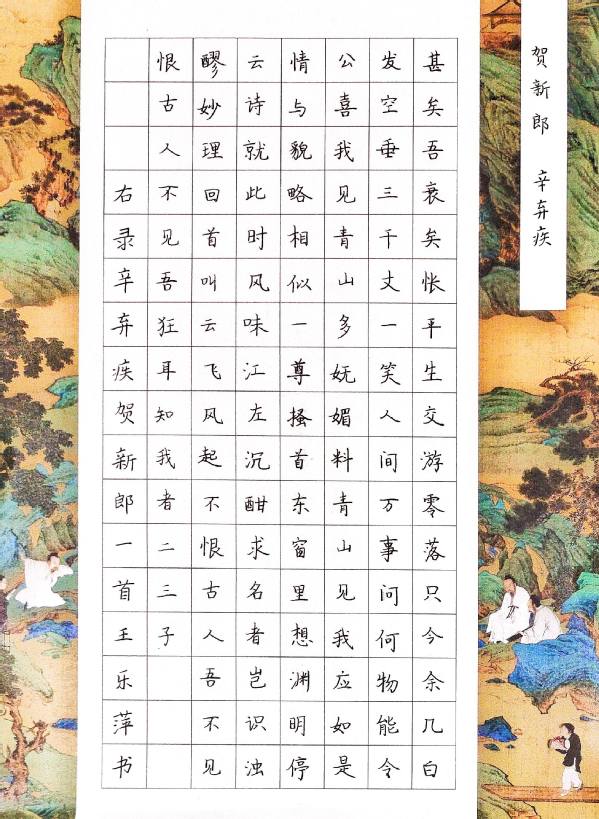 贺新郎 辛弃疾
甚矣吾衰矣怅平生交游零落只今余几白
发空垂三千丈一笑人间万事问何物能令
公喜我见青山多妩媚料青山见我应如是
情与貌略相似一尊搔首东窗里想渊明停
云诗就此时风味江左沉酣求名者岂识浊
醪妙理回首叫云飞风起不恨古人吾不见
恨古人不见吾狂耳知我者二三子
右录辛弃疾贺新郎一首王乐萍书